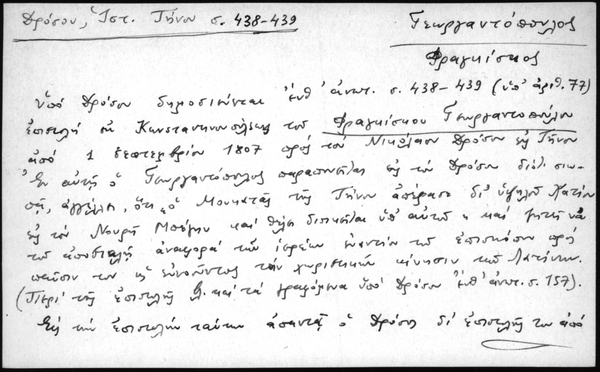 Δρόσου, Ἱστ. Τήνου σ. 438-439
Γεωργαντόπουλος
Φραγκίσκος
Ὑπό Δρόσου δημοσιεύεται ἔνθ' ἀνωτ. σ. 438-439 (ὑπ' ἀριθ. 77)
ἐπιστολή ἐκ Κωνσταντινουπόλεως τοῦ Φραγκίσκου Γεωργαντοπούλου
ἀπό 1 Σεπτεμβρίου 1807 πρός τόν Νικόλαον Δρόσον εἰς Τῆνον
Ἐν αὐτῇ ὁ Γεωργαντόπουλος παραπονεῖται εἰς τόν Δρόσον διότι
ἀγγέλλει, ὅτι ὁ Μουκατᾶς τῆς Τήνου ἐπέρασε δι' ὑψηλοῦ Χατίου
εἰς τόν Νουρῆ Μπέην καί θέλει διοικεῖται ὑπ' αὐτοῦ καί ζητεῖ νά
τοῦ ἀποσταλῇ ἀναφορά τῶν ἱερέων ἐναντίον τοῦ ἐπισκόπου πρός
παῦσίν του ὡς εὐνοοῦντος τήν κίνησιν τῶν Λατίνων.
(Περί τῆς ἐπιστολῆς βλ. καί τά γραφόμενα ὑπό Δρόσου ἔνθ' ἀνωτ. σ. 157).
Εἰς τήν ἐπιστολήν ταύτην ἀπαντᾷ ὁ Δρόσος δι' ἐπιστολῆς του ἀπό